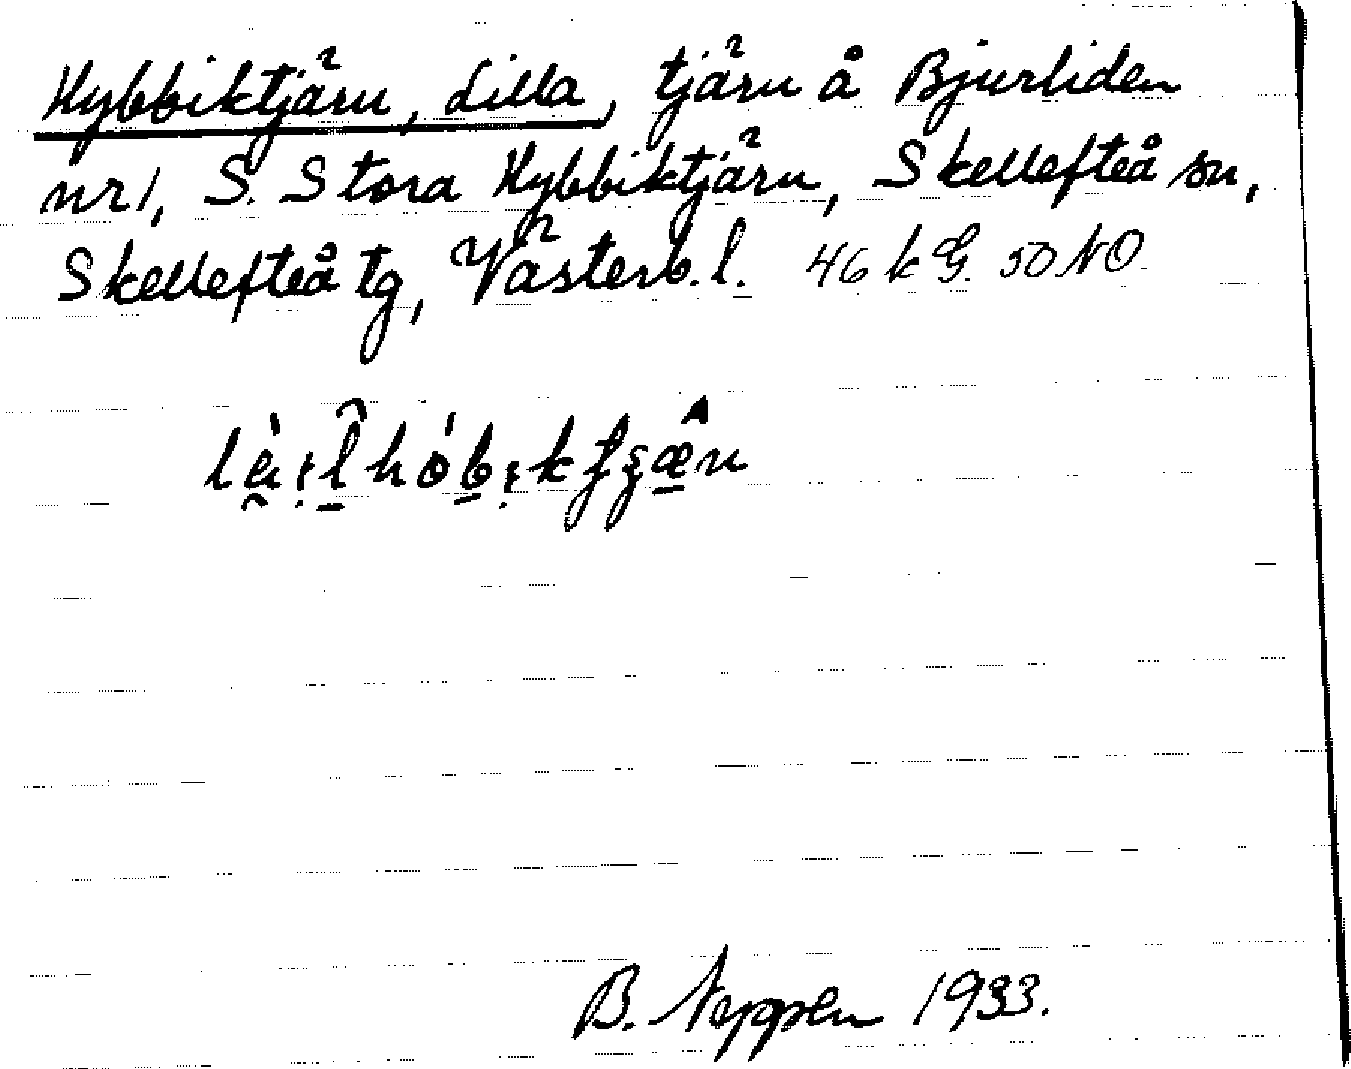 Hybbiktjärn, Lilla, tjärn å Bjurliden
nr 1, S. Stora Hybbiktjärn, Skellefteå sn,
Skellefteå tg, Västerb. l. 46 k G. 50 NO
B. Neppen 1933.